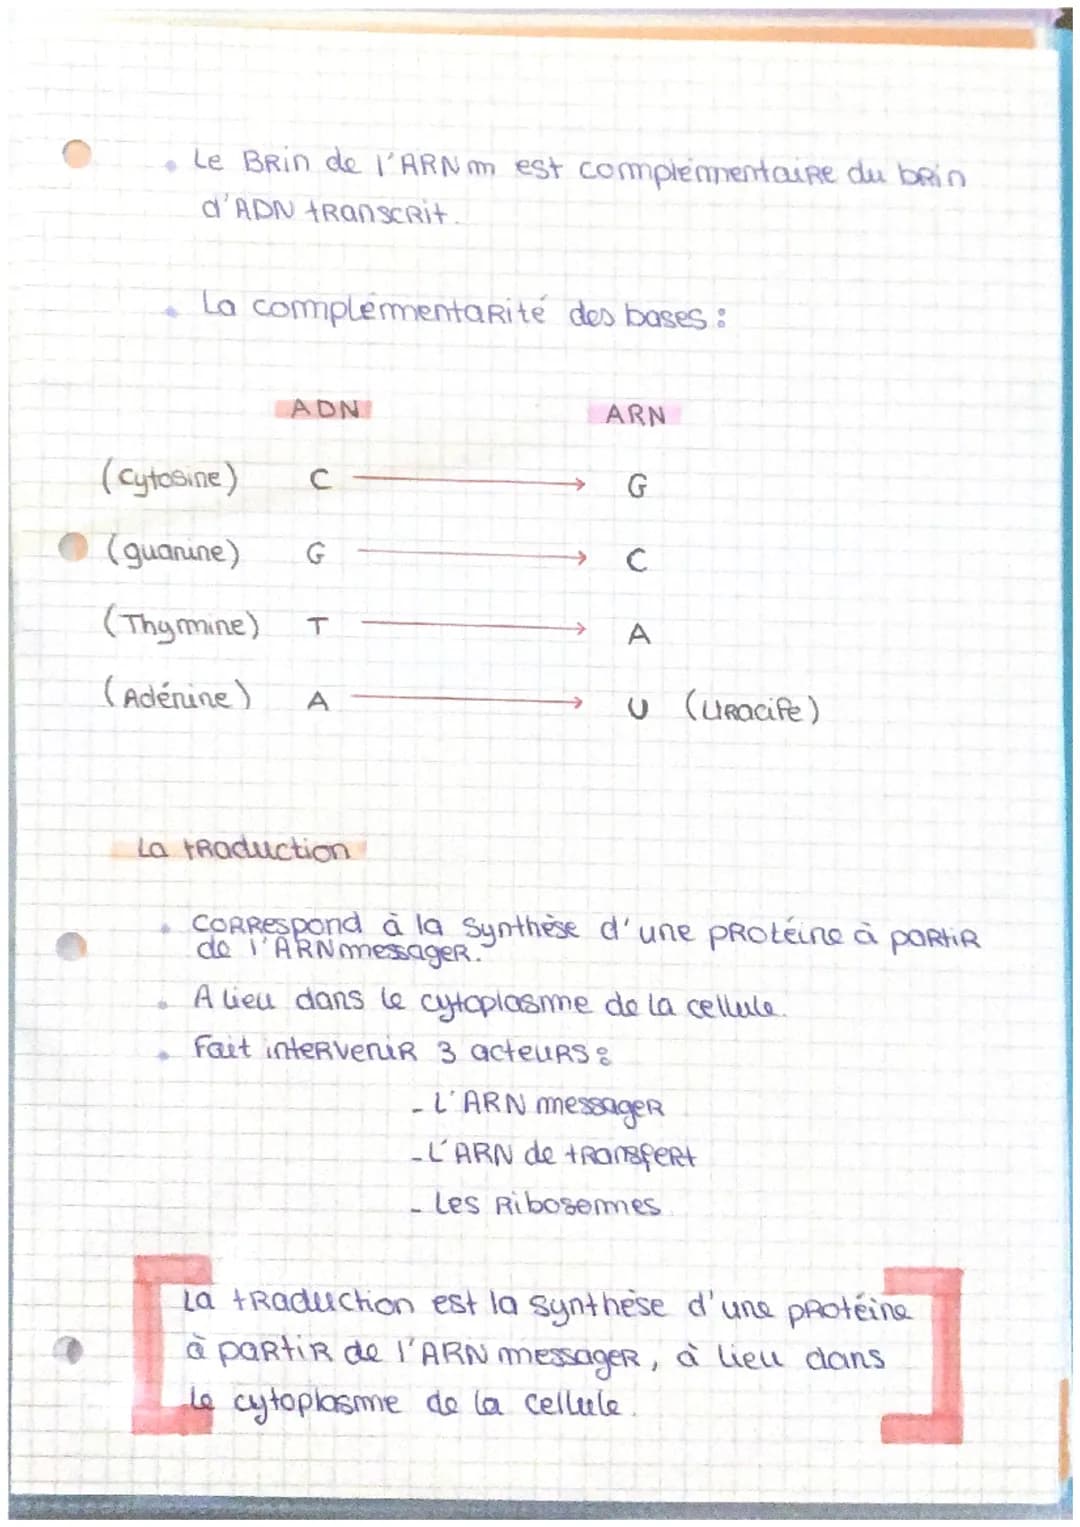 • Le Brin de l'ARNm est complémentaire du brin
d'ADN transcrit.
• La complémentarité des bases :
ADN ARN
(Cytosine) C → G
(guanine) G → C
(Thymine) T → A
(Adénine) A → U (Uracile)
La traduction
• Correspond à la synthèse d'une protéine à partir
de l'ARN messager.
• A lieu dans le cytoplasme de la cellule.
• Fait intervenir 3 acteurs :
- L'ARN messager
- L'ARN de transfert
- Les Ribosomes.
La traduction est la synthèse d'une protéine
à partir de l'ARN messager, à lieu dans
le cytoplasme de la cellule.